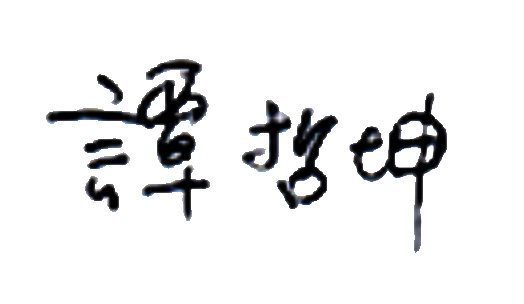 譚哲坤